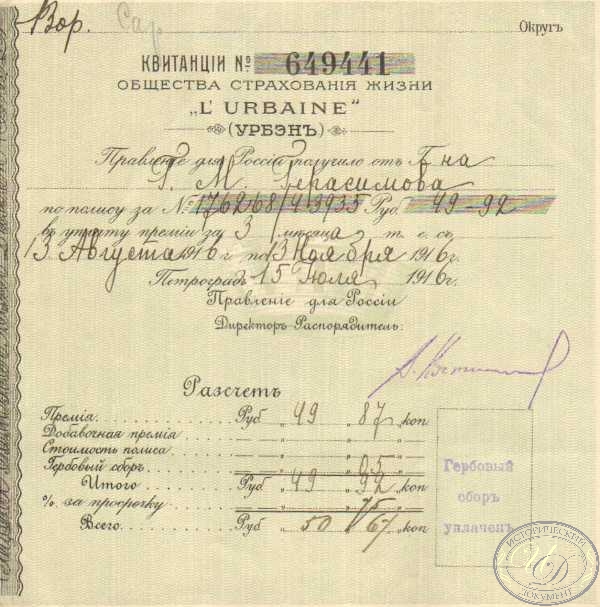 Вор. Сар Округъ
КВИТАНЦІИ № 649441
ОБЩЕСТВА СТРАХОВАНІЯ ЖИЗНИ
„L' URBAINE"
(УРБЭНЪ)
Правленіе для Россіи получило отъ Г на
Г. М. Герасимова
по полису за № 176268/413935 Руб 49-92
въ уплату преміи за 3 мѣсяца т. е. съ
13 Августа 1916 г. по 13 Ноября 1916 г.
Петроградъ 15 Іюля 1916 г.
Правленіе для Россіи
Директоръ-Распорядитель:
Разсчетъ
Премія Руб 49 „ 87 „коп
Добавочная премія „ „ „
Стоимость полиса „ „ „
Гербовый сборъ „ „ 05 „
Итого Руб „ 49 „ 92 „коп
% за просрочку „ „ 75 „
Всего Руб „ 50 „ 67 „коп
Гербовый
сборъ
уплаченъ
ИСТОРИЧЕСКИЙ
ИД
ДОКУМЕНТ